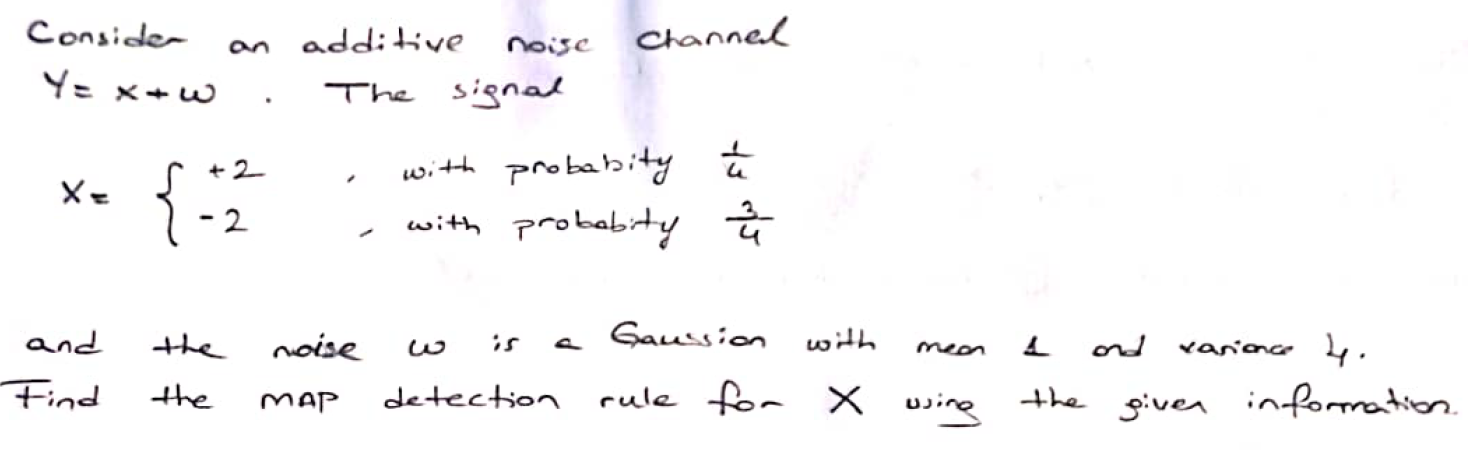 Consider an additive noise channel
Y = x + w . The signal
X = { +2 , with probabity 1/4
-2 , with probabity 3/4
and the noise w is a Gaussion with mean 1 and variance 4.
Find the MAP detection rule for X using the given information.